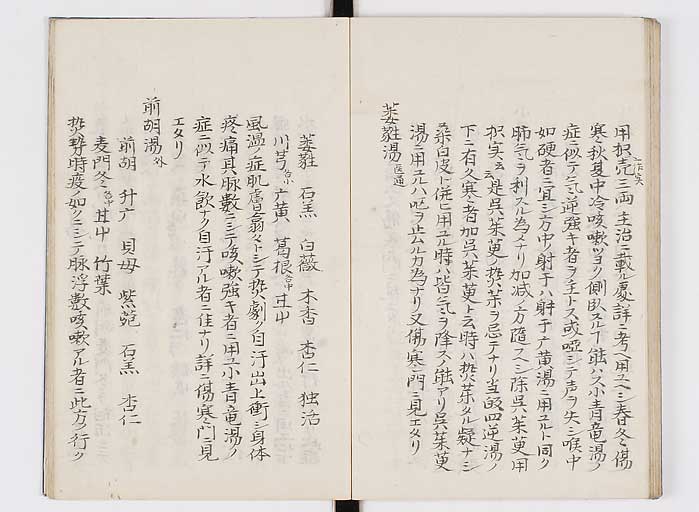 用枳売三両 主治ニ載ル処詳ニ考ヘ用ユヘシ春冬ハ傷
寒秋夏中冷咳嗽ツヨク側臥スルヿ能ハス小青竜湯ノ
症ニ似テ气逆強キ者ヲ主トス或哑ニシテ声ヲ失シ喉中
如硬者ニ宜シ方中ノ射干ハ射干麻黄湯ニ用ユルト同ク
肺気ヲ利スル為メナリ加減ノ方随フヘシ除呉茱萸用
枳実云々是呉茱萸ノ热薬ヲ忌テナリ当帰四逆湯ノ
下ニ有久寒者加呉茱萸ト云時ハ热薬タル疑ナシ
桑白皮ト併ヒ用ユル時ハ皆気ヲ降スノ能アリ呉茱萸
湯ニ用ユルハ呕ヲ止ムル力為ナリ又傷寒門ニ見エタリ
萎蕤湯 医通
萎蕤 石羔 白薇 木香 杏仁 独活
川芎 各小 麻黄 葛根 各中 甘中
風温ノ症肌膚翕々トシテ热劇ク自汗出上衝シ身体
疼痛其脉数ニシテ咳嗽強キ者ニ用ユ小青竜湯ノ
症ニ似テ水飲ナク自汗アル者ニ佳ナリ詳ニ傷寒門ニ見
エタリ
前胡湯 外
前胡 升麻 貝母 紫菀 石羔 杏仁
麦門冬 各中 甘中 竹葉
热勢時疫ノ如クニシテ脉浮数咳嗽アル者ニ此方ヲ行ク